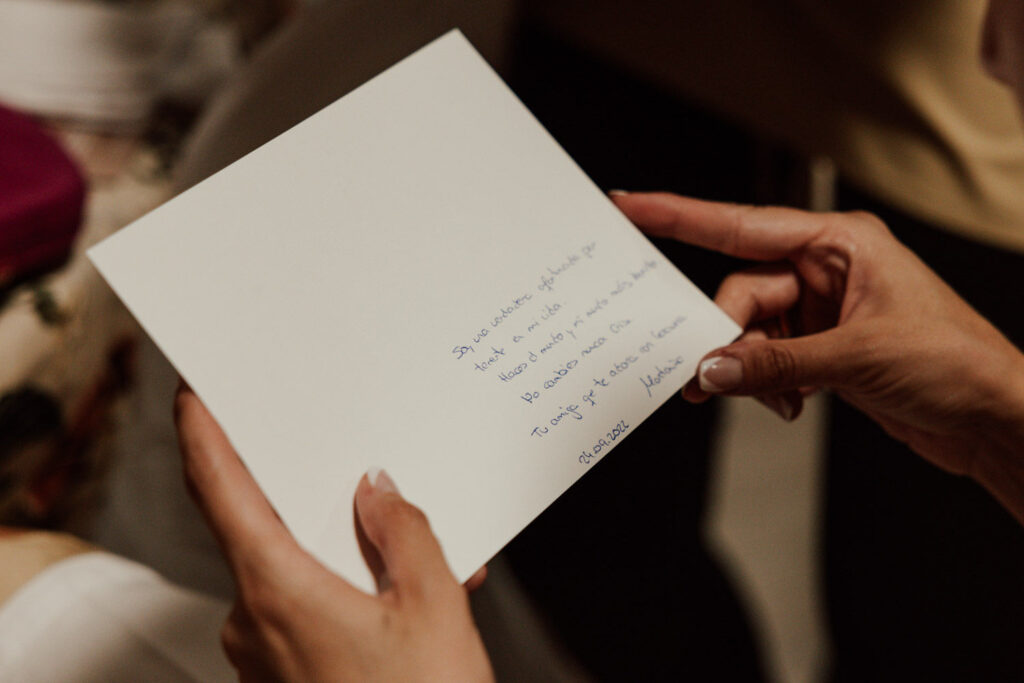 Soy una verdadera afortunada por
tenerte en mi vida.
Haces el mundo y mi mundo más bonito.
No cambies nunca
Tu amiga que te adora con locura
24.09.2022